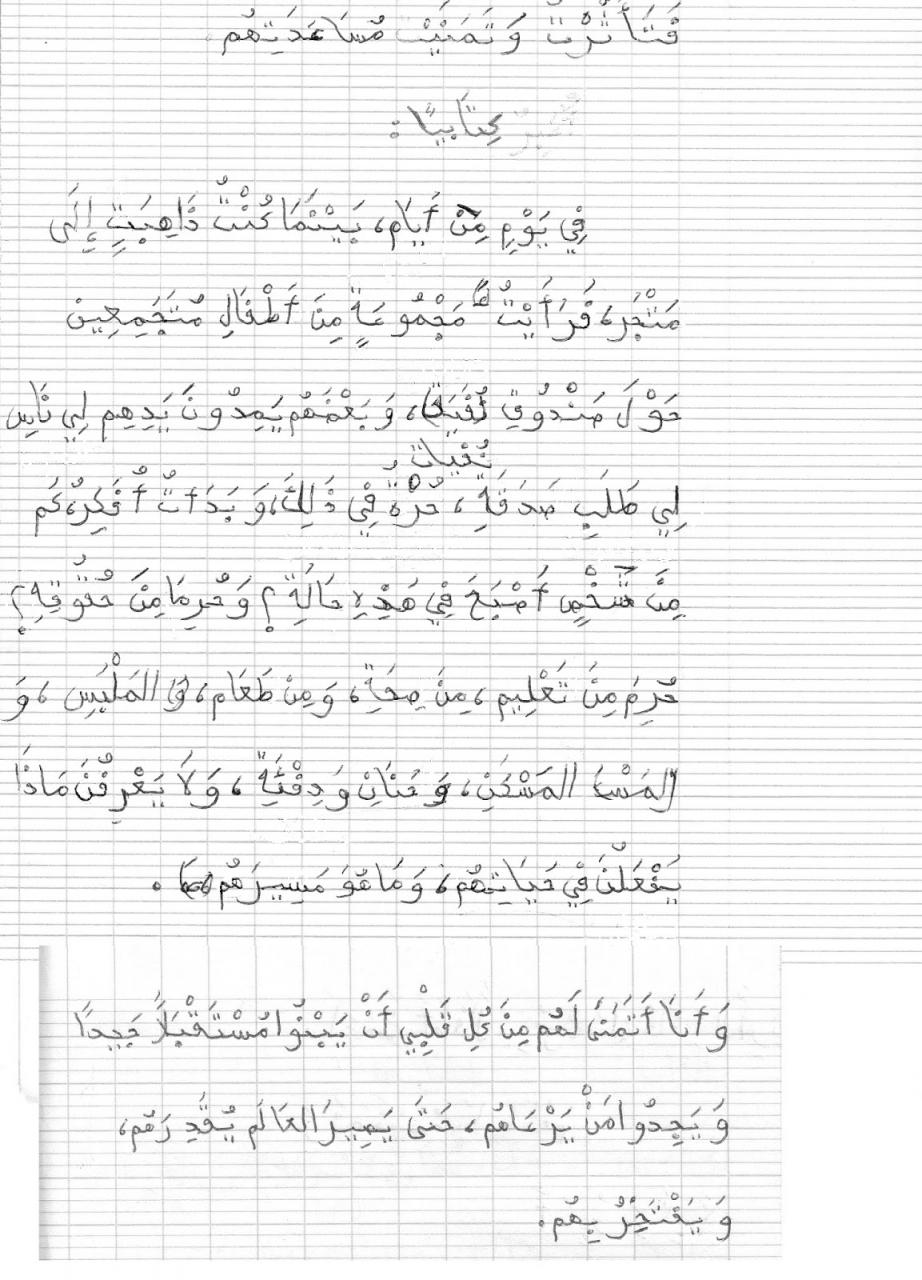 فَتَأَثَرْتُ وَتَمَنَيْتُ مُسَاعَدَتِهُم.
كِتَابِيًا :
فِي يَوْمٍ مِنْ أَيَام، بَيْنَمَا كُنْتُ ذَاهِبَتٍ إِلَى
مَتْجَر، فَرَأَيْتُ مَجْمُوعَةٍ مِنَ أَطْفَالِ مُتَجَمِعِين
حَوْلَ صَنْدُوقِ نُفَيَات، وَبَعْضَهُم يَمِدُونَ يَدِهِم لِي نَاسِ
نُفَيات
لِي طَلَبِ صَدَقَةٍ، حُرْةٌ فِي ذَلِكَ، وَبَدَأتُ أُفَكِرُ، كَم
مِنَ شَخْصٍ أَصْبَحَ فِي هَذِهِ حَالَةِ؟ وَحُرِمَا مِنَ حُقُوقِهِ؟
حُرِمَ مِنَ تَعْلِيم، مِنَ صِحَةِ، وَمِنْ طَعَام، وَ المَلْبَسِ، وَ
المَسْ المَسْكَنِ، وَ حَنَانِ وَدِفْئَةِ، وَلَا يَعْرِفْنَ مَاذَا
يَفْعَلْنَ فِي حَيَاتِهُم، وَمَا هُوَ مَسِيرَهُم .
وَأَنَا أَتَمَنَى لَهُم مِنَ كُلِ قَلْبِي أَنْ يَبْنُوا مُسْتَقْبَلاً جَيِدًا
وَيَجِدُوا مَنْ يَرْعَاهُم، حَتَى يَصِيرَ العَالَم يُقَدِرَهُم،
وَيَفْتَخِرُ بِهُم.